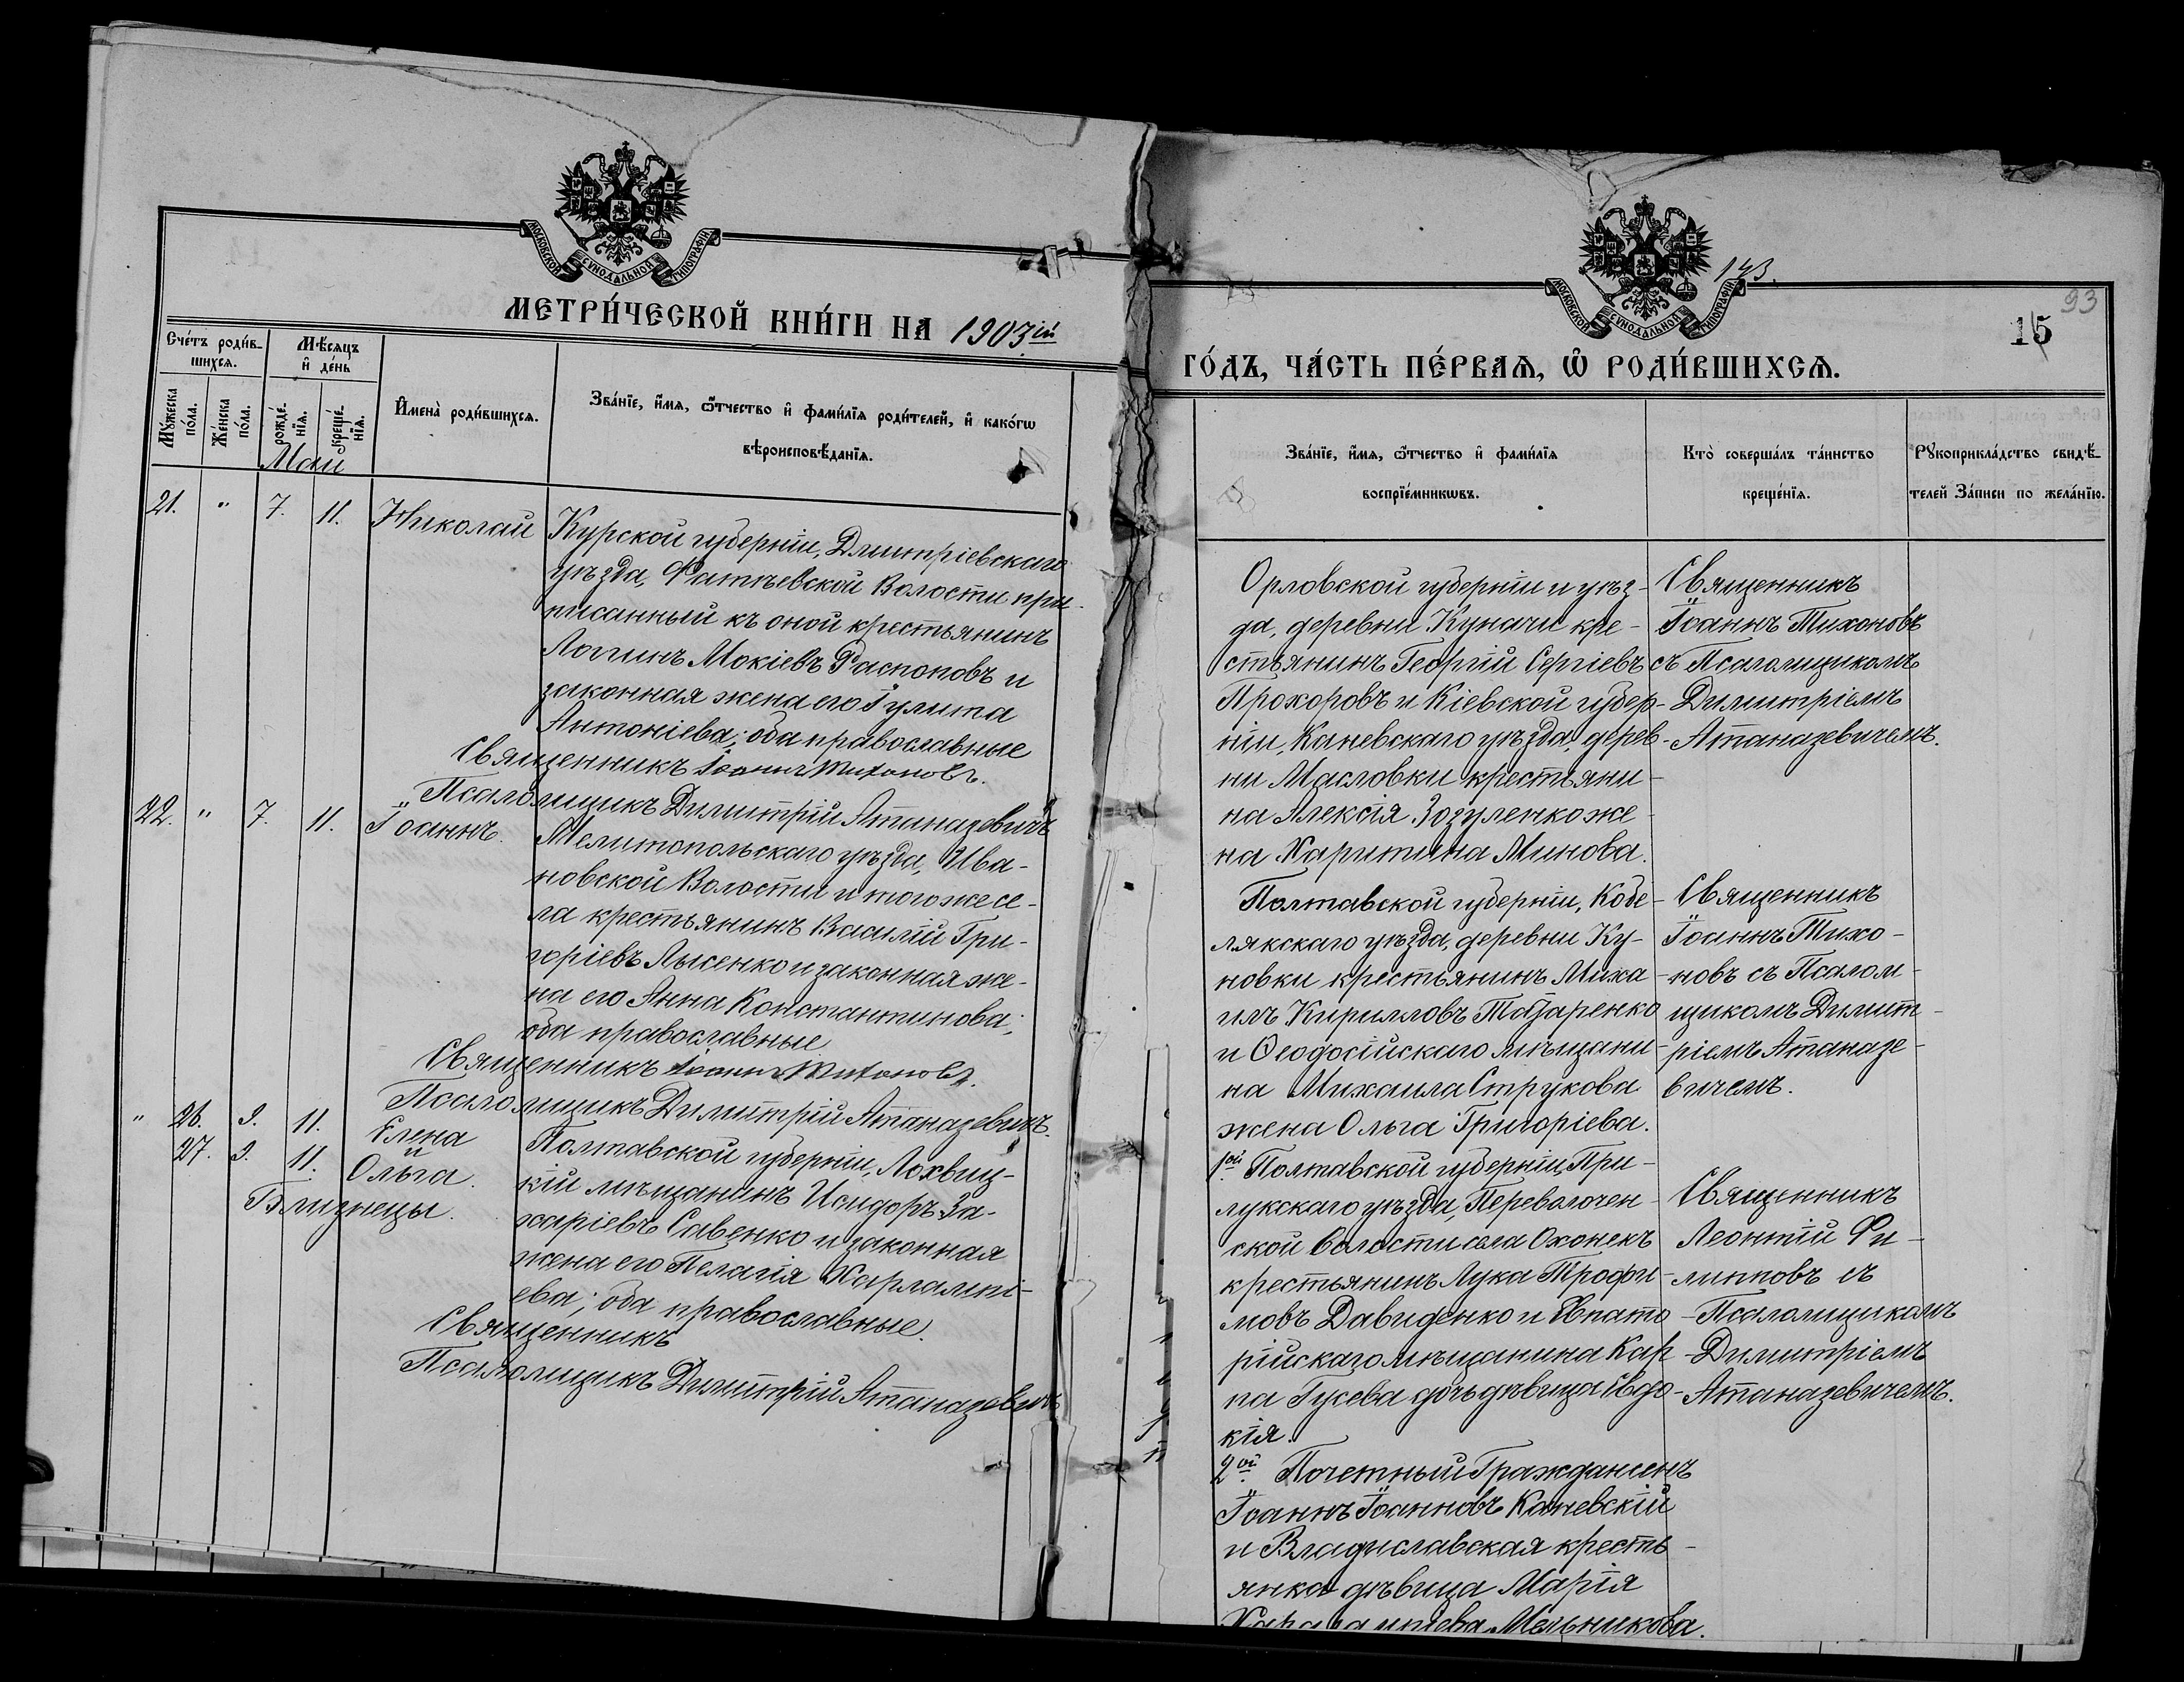 МОСКОВСКОЙ СѴНОДАЛЬНОЙ ТИПОГРАФІИ
МЕТРИ́ЧЕСКОЙ КНИ́ГИ НА 1903ій
Сче́тъ роди́в-
шихся.
Мѣ́сяцъ
и҆ де́нь
Мꙋ́жеска
по́ла.
Же́нска
по́ла.
рожде́-
нїя.
креще́-
нїя.
И҆мена̀ роди́вшихся.
Зва́нїе, и҆́мя, ѻ҆́тчество и҆ фами́лїя роди́телей, и҆ како́гѡ
вѣроисповѣ́данїя.
Маи
21. " 7. 11. Николай
Курской губерніи, Дмитріевскаго
уѣзда, Фатѣевской Волости при-
писанный къ оной крестьянинъ
Логгинъ Мокіевъ Распоповъ и
законная жена его Іулита
Антоніева; оба православные
Священникъ Іоаннъ Тихоновъ.
Псаломщикъ Димитрій Атаназевичъ
22. " 7. 11. Іоаннъ.
Мелитопольскаго уѣзда, Ива-
новской Волости и того же се-
ла крестьянинъ Василій Гри-
горіевъ Лысенко и законная же-
на его Анна Константинова;
оба православные
Священникъ Іоаннъ Тихоновъ.
Псаломщикъ Димитрій Атаназевичъ.
" 26. 9. 11. Елена
и
27. 9. 11. Ольга.
Близнецы.
Полтавской губерніи, Лохвиц-
кій мѣщанинъ Исидоръ За-
харіевъ Савенко и законная
жена его Пелагія Харлампі-
ева; оба православные.
Священникъ
Псаломщикъ Димитрій Атаназевичъ
МОСКОВСКОЙ СѴНОДАЛЬНОЙ ТИПОГРАФІИ
143.
93
15
ГО́ДЪ, ЧА́СТЬ ПЕ́РВАЯ, Ѡ҆ РОДИ́ВШИХСЯ.
Зва́нїе, и҆́мя, ѻ҆́тчество и҆ фами́лїя
воспрїе́мникѡвъ.
Кто̀ соверша́лъ та́инство
креще́нїя.
Рꙋкоприкла́дство свидѣ́-
телей За́писи по жела́нїю.
Орловской губерніи и уѣз-
да, деревни Куначи кре-
стьянинъ Георгій Сергіевъ
Прохоровъ и Кіевской губер-
ніи, Каневскаго уѣзда, дерев-
ни Масловки крестьяни-
на Алексія Зозуленко же-
на Харитина Минова.
Священникъ
Іоаннъ Тихоновъ
съ Псаломщикомъ
Димитріемъ
Атаназевичемъ.
Полтавской губерніи, Кобе-
лякскаго уѣзда, деревни Ку-
новки крестьянинъ Миха-
илъ Кирилловъ Татаренко
и Ѳеодосійскаго мѣщани-
на Михаила Струкова
жена Ольга Григоріева.
Священникъ
Іоаннъ Тихо-
новъ съ Псалом-
щикомъ Димит-
ріемъ Атаназе-
вичемъ.
1ой Полтавской губерніи, При-
лукскаго уѣзда, Переволочен-
ской Волости села Охонекъ
крестьянинъ Лука Трофи-
мовъ Давиденко и Евпато-
рійскаго мѣщанина Кар-
па Гусева дочь дѣвица Евдо-
кія.
Священникъ
Леонтій Фи-
липповъ съ
Псаломщикомъ
Димитріемъ
Атаназевичемъ.
2ой. Почетный Гражданинъ
Іоаннъ Іоанновъ Каневскій
и Владиславская кресть-
янка дѣвица Марія
Харалампіева Мельникова.